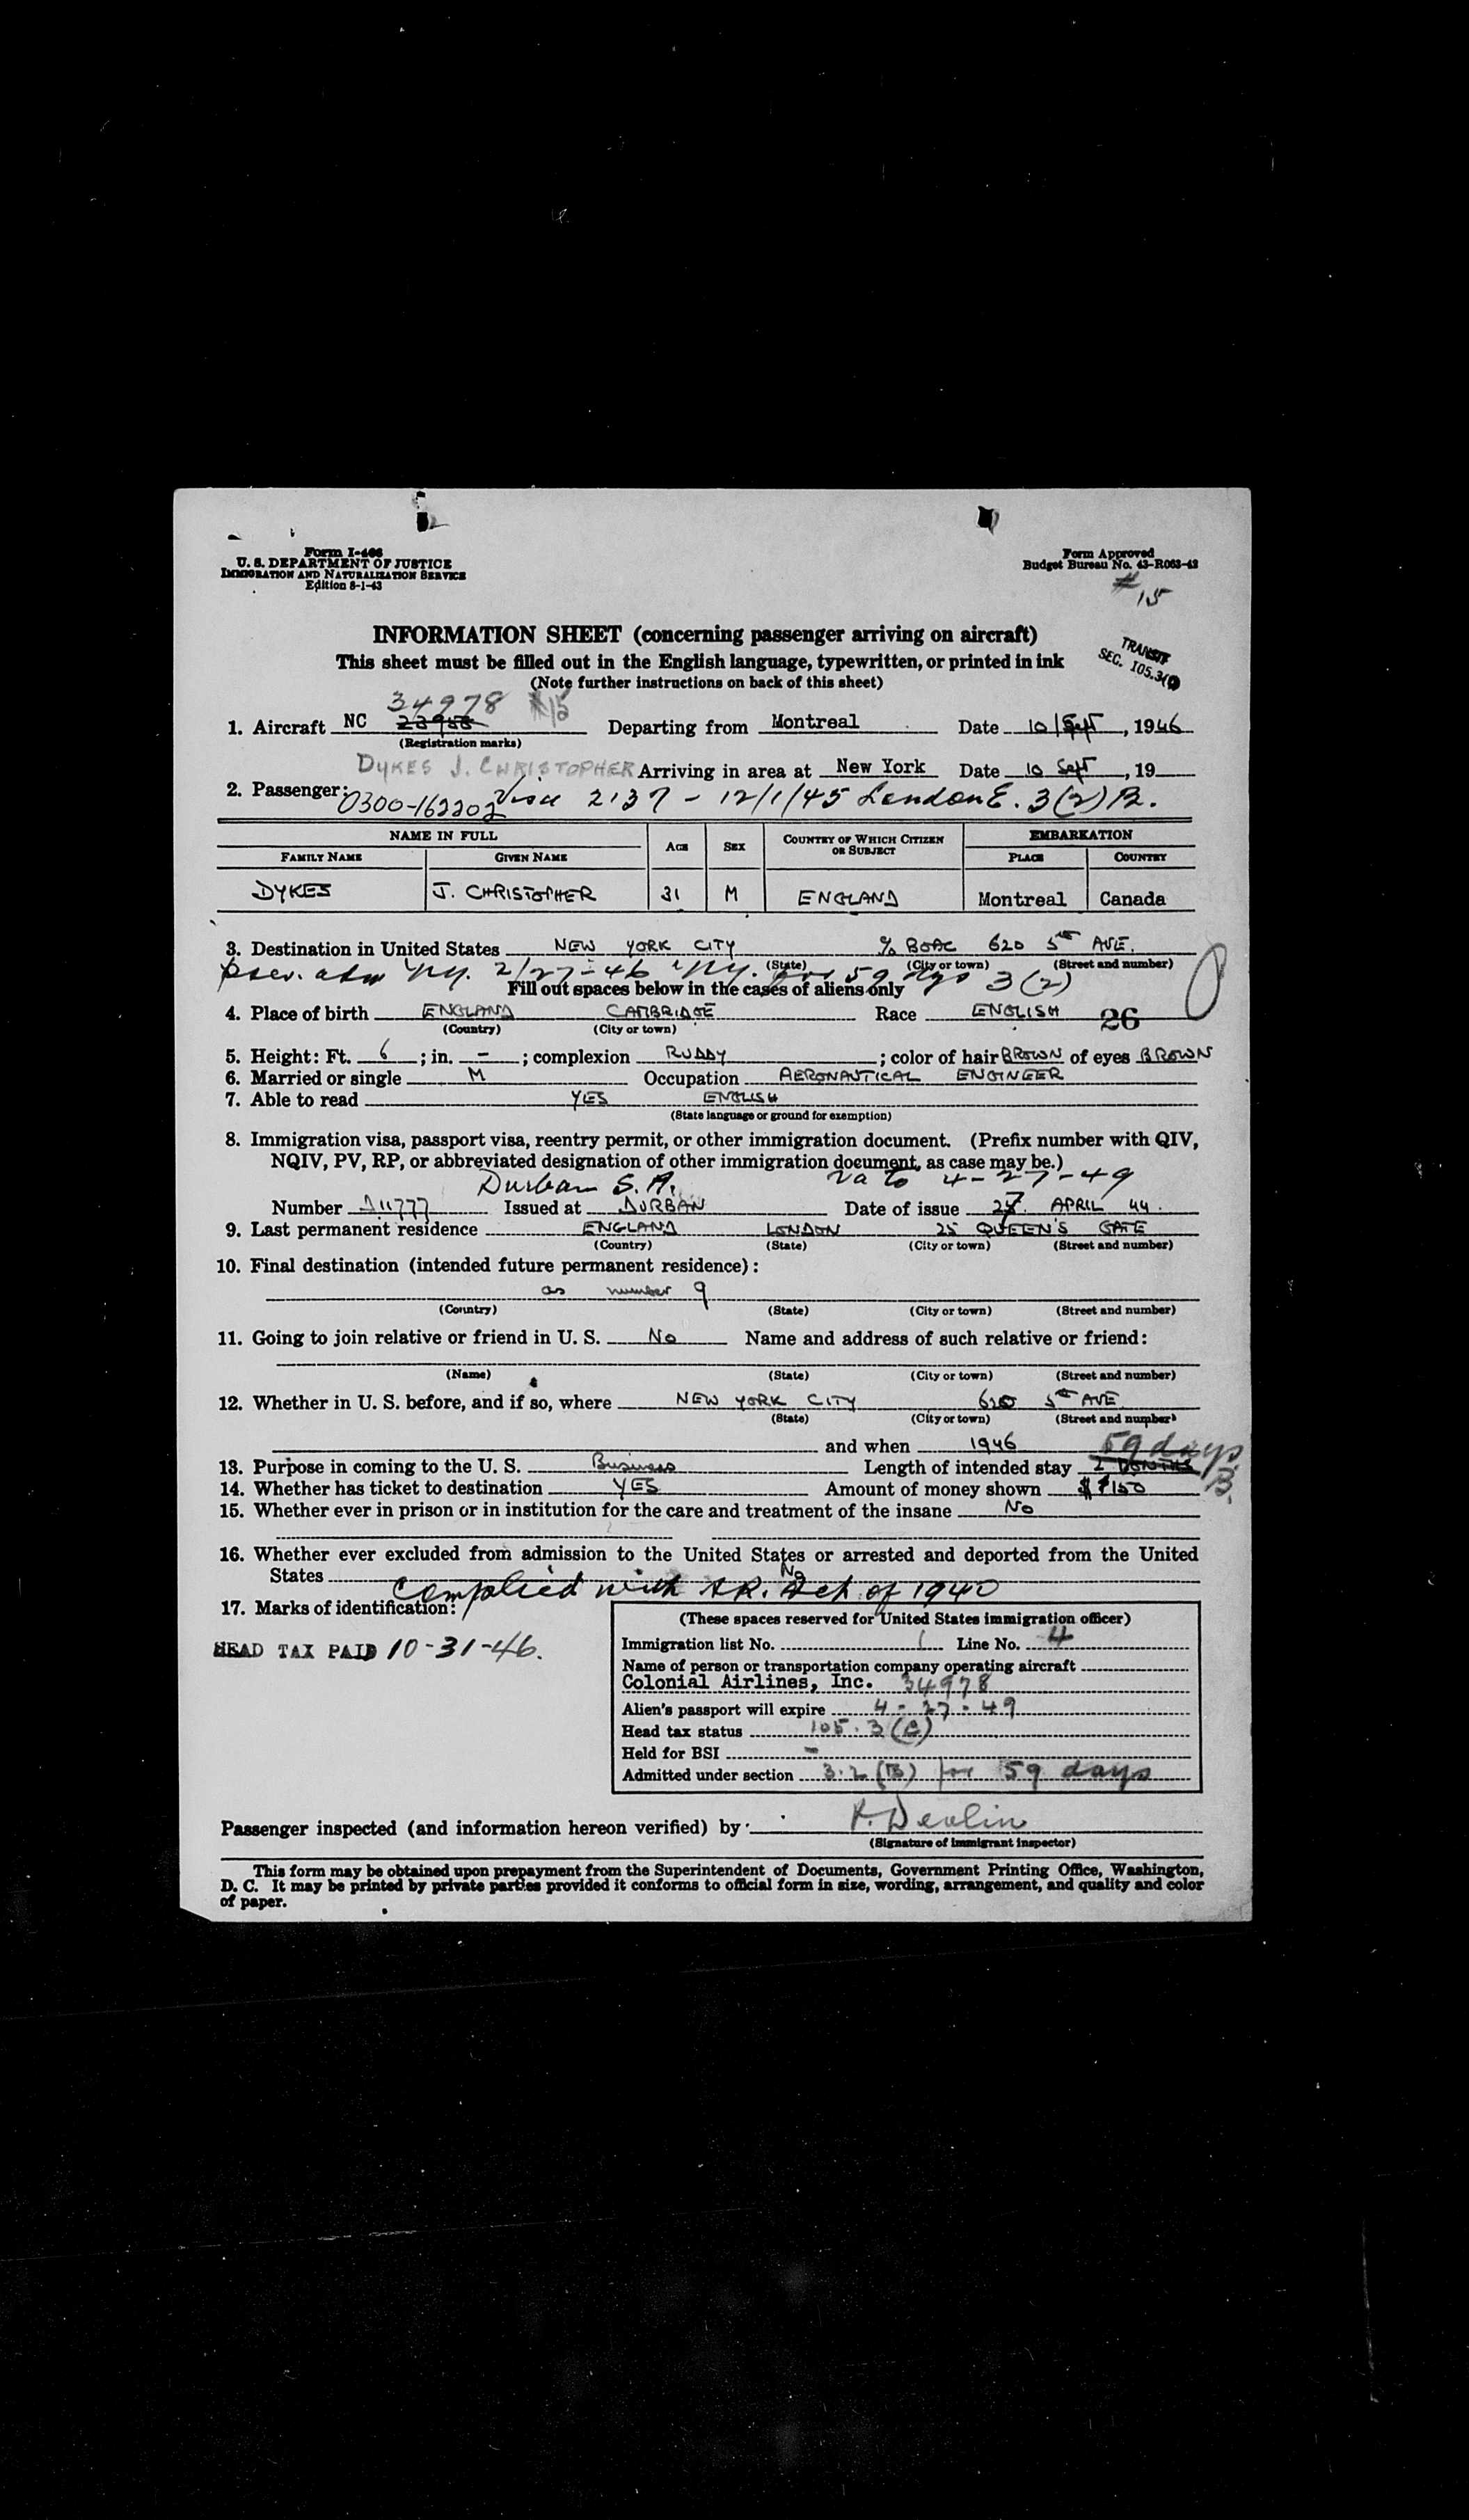 Form I-466
U. S. DEPARTMENT OF JUSTICE
IMMIGRATION AND NATURALIZATION SERVICE
Edition 8-1-43
Form Approved
Budget Bureau No. 43-R063-42
# 15
INFORMATION SHEET (concerning passenger arriving on aircraft)
This sheet must be filled out in the English language, typewritten, or printed in ink
(Note further instructions on back of this sheet)
TRANSIT
SEC. 105.3(
34978
1. Aircraft NC Departing from Montreal Date 10 Sept, 1946
(Registration marks)
DYKES J. CHRISTOPHER Arriving in area at New York Date 10 Sept, 19
2. Passenger: 0300-162202 Visa 2137 - 12/1/45 London E. 3(2) B.
NAME IN FULL AGE SEX COUNTRY OF WHICH CITIZEN OR SUBJECT EMBARKATION
FAMILY NAME GIVEN NAME PLACE COUNTRY
DYKES J. CHRISTOPHER 31 M ENGLAND Montreal Canada
3. Destination in United States NEW YORK CITY % BOAC 620 5th AVE.
(State) (City or town) (Street and number)
prev. adm NY. 2/27-46 NY. for 59 dys 3(2)
Fill out spaces below in the cases of aliens only
4. Place of birth ENGLAND CAMBRIDGE Race ENGLISH 26
(Country) (City or town)
5. Height: Ft. 6; in. -; complexion RUDDY; color of hair BROWN of eyes BROWN
6. Married or single M Occupation AERONAUTICAL ENGINEER
7. Able to read YES ENGLISH
(State language or ground for exemption)
8. Immigration visa, passport visa, reentry permit, or other immigration document. (Prefix number with QIV,
NQIV, PV, RP, or abbreviated designation of other immigration document, as case may be.)
Durban S. A. va to 4-27-49
Number D11777 Issued at DURBAN Date of issue 27 APRIL 44.
9. Last permanent residence ENGLAND LONDON 25 QUEEN'S GATE
(Country) (State) (City or town) (Street and number)
10. Final destination (intended future permanent residence):
as number 9
(Country) (State) (City or town) (Street and number)
11. Going to join relative or friend in U. S. No Name and address of such relative or friend:
(Name) (State) (City or town) (Street and number)
12. Whether in U. S. before, and if so, where NEW YORK CITY 620 5th AVE
(State) (City or town) (Street and number)
and when 1946 59 days
13. Purpose in coming to the U. S. Business Length of intended stay 2 MONTHS B.
14. Whether has ticket to destination YES Amount of money shown $150
15. Whether ever in prison or in institution for the care and treatment of the insane No
16. Whether ever excluded from admission to the United States or arrested and deported from the United
States No
Complied with A.R. Act of 1940
17. Marks of identification:
HEAD TAX PAID 10-31-46.
(These spaces reserved for United States immigration officer)
Immigration list No. 1 Line No. 4
Name of person or transportation company operating aircraft
Colonial Airlines, Inc. 34978
Alien's passport will expire 4-27-49
Head tax status 105.3(C)
Held for BSI -
Admitted under section 3.2(B) for 59 days
Passenger inspected (and information hereon verified) by P. Devlin
(Signature of immigrant inspector)
This form may be obtained upon prepayment from the Superintendent of Documents, Government Printing Office, Washington,
D. C. It may be printed by private parties provided it conforms to official form in size, wording, arrangement, and quality and color
of paper.